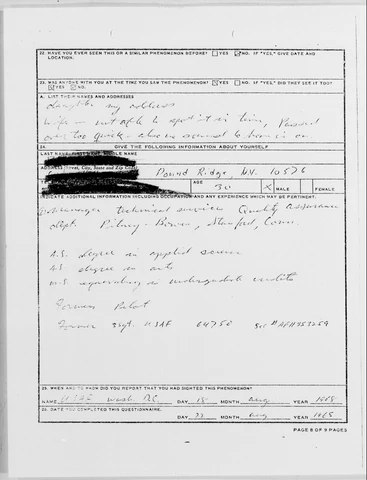 22. HAVE YOU EVER SEEN THIS OR A SIMILAR PHENOMENON BEFORE? YES NO. IF "YES," GIVE DATE AND
LOCATION.
23. WAS ANYONE WITH YOU AT THE TIME YOU SAW THE PHENOMENON? YES NO. IF "YES," DID THEY SEE IT TOO?
YES NO.
A. LIST THEIR NAMES AND ADDRESSES
my address
Wife - not able to spot it in time, Passed
over too quick -
24. GIVE THE FOLLOWING INFORMATION ABOUT YOURSELF
LAST NAME, FIRST NAME, MIDDLE NAME
ADDRESS (Street, City, State and Zip Code)
Pound Ridge, N.Y. 10576
AGE
30 X MALE FEMALE
INDICATE ADDITIONAL INFORMATION INCLUDING OCCUPATION AND ANY EXPERIENCE WHICH MAY BE PERTINENT.
Manager technical services Quality assurance
dept. Pitney-Bowes, Stamford, Conn.
A.S. degree in applied science
degree in arts
in undergraduate credits
Former Pilot
Former Sgt. USAF 64750
25. WHEN AND TO WHOM DID YOU REPORT THAT YOU HAD SIGHTED THIS PHENOMENON?
NAME USAF Wash. D.C. DAY 18 MONTH Aug YEAR 1968
26. DATE YOU COMPLETED THIS QUESTIONNAIRE.
DAY 22 MONTH Aug YEAR 1968
PAGE 8 OF 9 PAGES